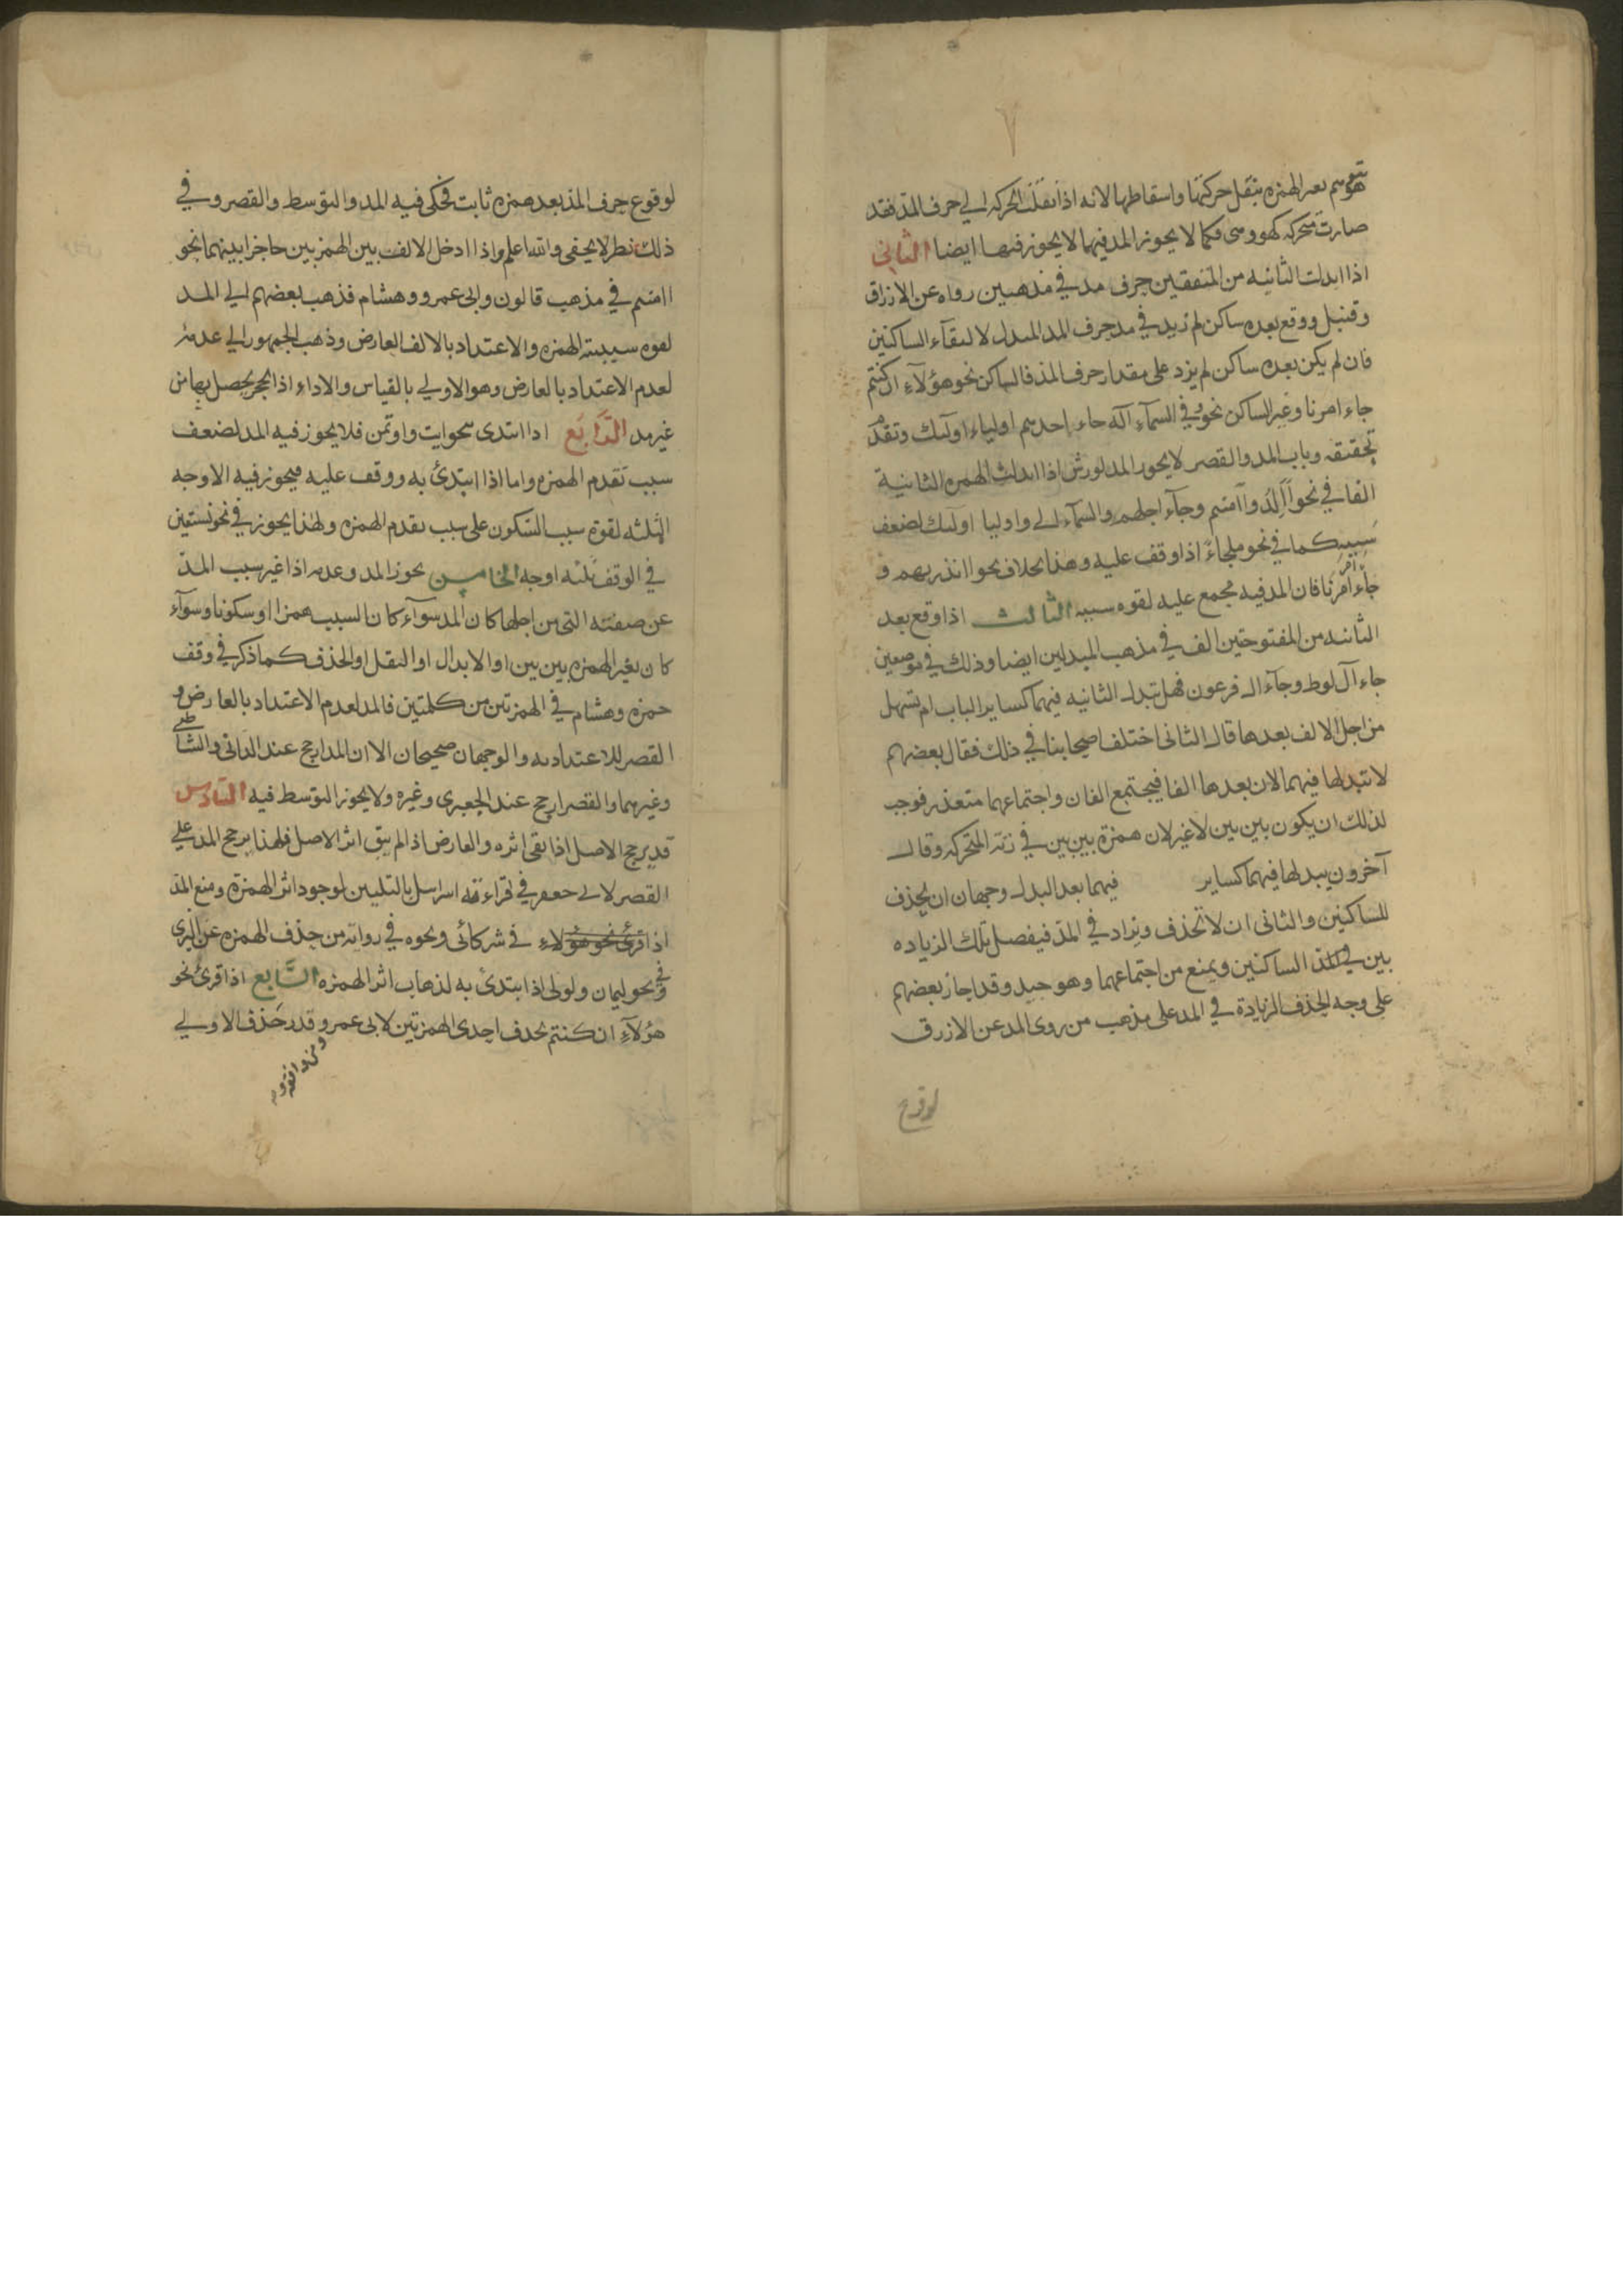 ٧
يتوهم بعد الهمزه بنقل حركتها واسقاطها لانه اذا نقلت الحركه الي حرف المد فقد
صارت متحركه كهو وهى فكما لا يجوز المد فيهما لا يجوز فيها ايضا الثانى
اذا ابدلت الثانيه من المتفقتين حرف مد في مذهب من رواه عن الازرق
وقنبل ووقع بعده ساكن لم زيد في مد حرف المد المبدل لالتقاء الساكنين
فان لم يكن بعده ساكن لم يزد على مقدار حرف المد فالساكن نحو هؤلآء ان كنتم
جاء امرنا وغير الساكن نحو في السمآء اله جاء احدهم اولياء اولىك وتقدم
تحقيقه وباب المد والقصر لا يجوز المد لورش اذا ابدلت الهمزه الثانية
الفا في نحو أألد وآمنتم وجآء اجلهم والسمآء الى واوليا اولىك لضعف
سببه كما في نحو ملجاءً اذا وقف عليه وهذا بخلاف نحو اانذرتهم و
جاء امرنا فان المد فيه مجمع عليه لقوه سببه الثالث اذا وقع بعد
الثانيه من المفتوحتين الف في مذهب المبدلين ايضا وذلك في موضعين
جاء آل لوط وجآء ال فرعون فهل تبدل الثانيه فيهما كساير الباب ام تسهل
من اجل الالف بعدها قال الثانى اختلف اصحابنا في ذلك فقال بعضهم
لا تبدلها فيهما لان بعدها الفا فيجتمع الفان واجتماعهما متعذر فوجب
لذلك ان يكون بين بين لا غير لان همزة بين بين في زنة المتحركه وقال
آخرون يبدلها فيهما كساير فيهما بعد البدل وجهان ان يحذف
للساكنين والثانى ان لا تحذف ويزاد في المد فيفصل بتلك الزياده
بين الساكنين ويمنع من اجتماعهما وهو جيد وقد اجاز بعضهم
على وجه الحذف الزيادة في المد على مذهب من روى المد عن الازرق
لوقوع
لوقوع حرف المد بعد همزه ثابت فحكى فيه المد والتوسط والقصر وفي
ذلك نظر لا يخفى والله اعلم واذا ادخل الالف بين الهمزتين حاجزا بينهما نحو
اامنتم في مذهب قالون وابى عمرو وهشام فذهب بعضهم الي المد
لقوه سببيته الهمزه والاعتداد بالالف العارض وذهب الجمهور الي عدمه
لعدم الاعتداد بالعارض وهو الاولي بالقياس والاداء اذ الحجز يحصل بها من
غير مد الرابع اذا ابتدى نحو ايت واوتمن فلا يجوز فيه المد لضعف
سبب تقدم الهمزه واما اذا ابتدئ به ووقف عليه فيجوز فيه الاوجه
الثلثه لقوة سبب السكون على سبب تقدم الهمزه ولهذا يجوز في نحو نستعين
في الوقف ثلثه اوجه الخامس يجوز المد وعدمه اذا غير سبب المد
عن صفته التى من اجلها كان المد سوآء كان السبب همزا او سكونا وسوآء
كان تغير الهمزه بين بين او الابدال او النقل او الحذف كما ذكر في وقف
حمزه وهشام في الهمزتين من كلمتين فالمد لعدم الاعتداد بالعارض و
القصر للاعتداد به والوجهان صحيحان الا ان المد ارجح عند الدانى والشاطبي
وغيرهما والقصر ارجح عند الجعبرى وغيره ولا يجوز التوسط فيه السادس
قد يرجح الاصل اذا بقى اثره والعارض اذا لم يبق اثر الاصل فلهذا يرجح المد علي
القصر لابى جعفر في قراءته اسرايىل بالتليين لوجود اثر الهمزة ومنع المد
اذا قرئ نحو هؤلاء في شركائى ونحوه في روايه من حذف الهمزه عن البزى
وفي نحو ليمان ولولى اذا ابتدئ به لذهاب اثر الهمزه السابع اذا قرئ نحو
هؤلآء ان كنتم بحذف احدى الهمزتين لابى عمرو وقدر حذف الاولي
ومن وافقه